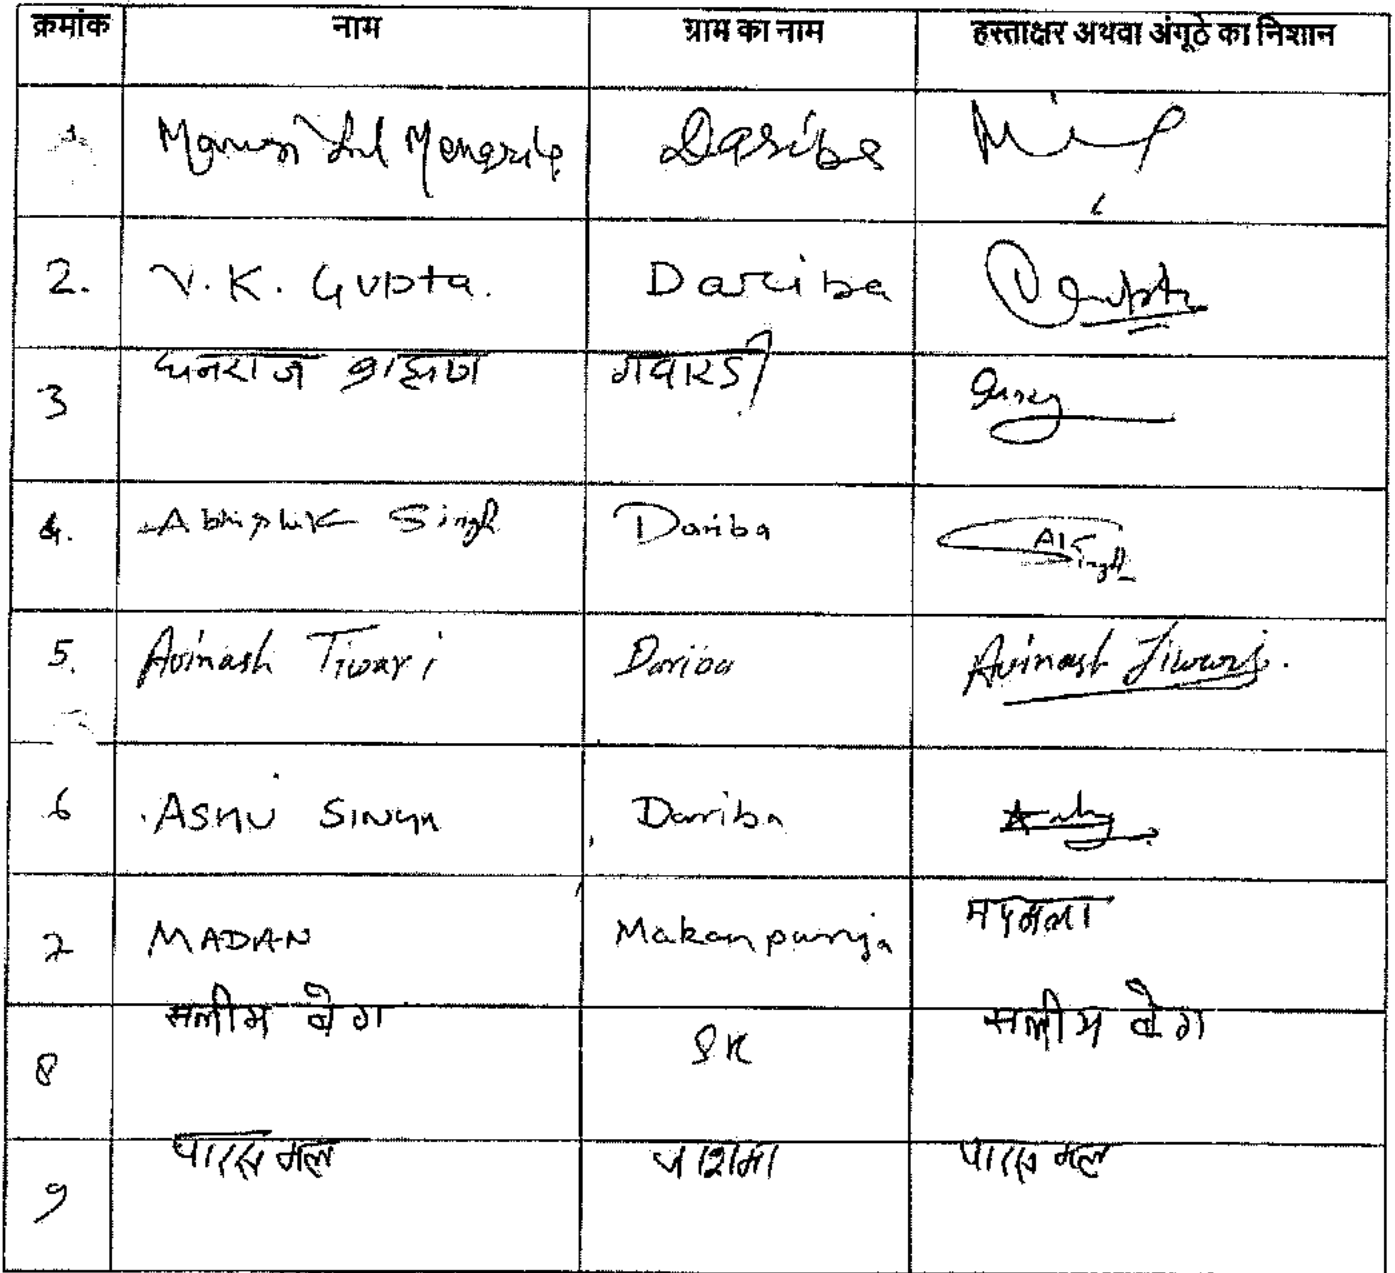 क्रमांक नाम ग्राम का नाम हस्ताक्षर अथवा अंगूठे का निशान
Dariba
2. V.K. Gupta. Dariba Gupta
3 धनराज ब्राह्मण गवारडी
4. Abhishek Singh Dariba A Singh
5. Avinash Tiwari Dariba Avinash Tiwari.
6 ASHU SINGH Dariba
7 MADAN Makanpuriya
8 सलीम बेग SK सलीम बेग
9 पारस मल पारस मल